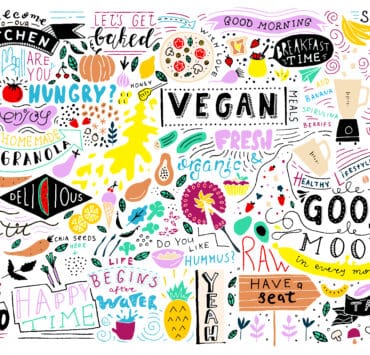 TO OUR
KITCHEN
LET'S GET
baked
WITH LOVE
GOOD MORNING
BREAKFAST
TIME
ARE
YOU
HUNGRY?
HONEY
VEGAN
MEALS
BANANA
SPIRULINA
BERRIES
enjoy
HOME MADE
GRANOLA
FRESH
organic &
HEALTHY
LIFESTYLE
DELICIOUS
GOO
MOO
in every mo
CHIA SEEDS
HERE
DO YOU
LIKE
HUMMUS?
RAW
LIFE
BEGINS
after
WATER
HAPPY
TIME
YEAH
HAVE A
seat